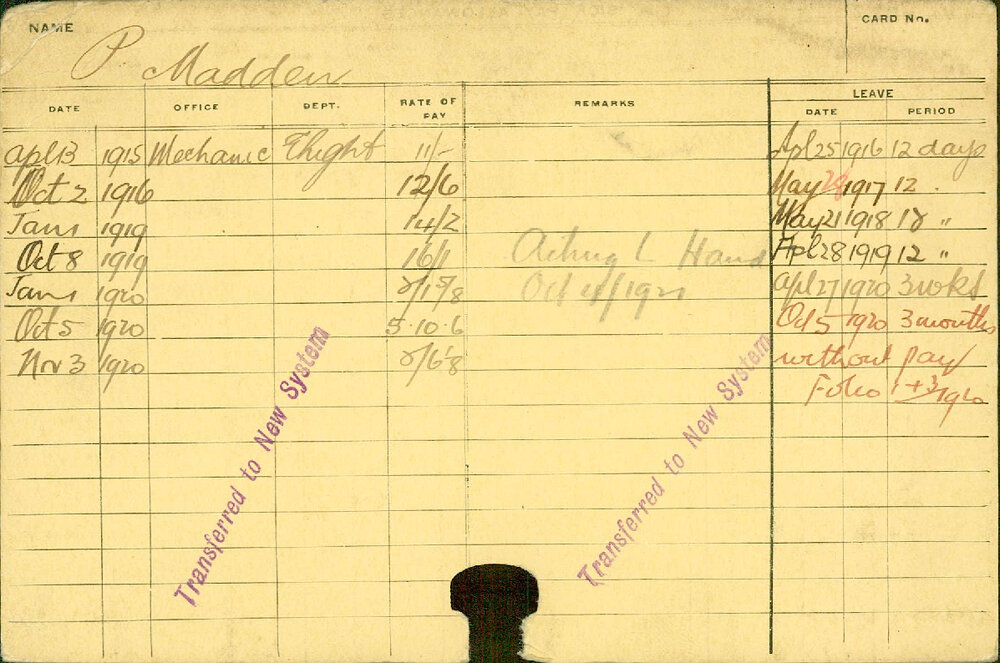 NAME
CARD No.
P. Madden
DATE OFFICE DEPT. RATE OF PAY REMARKS LEAVE
DATE PERIOD
Apl 13 1915 Mechanic 11/- Apl 25 1916 12 days
Oct 2 1916 12/6 May 28 1917 12
Jan 1 1919 14/2 May 21 1918 18 "
Oct 8 1919 16/1 Acting L Hand Apl 28 1919 12 "
Jan 1 1920 Oct 1920 Apl 27 1920 3 wks
Oct 5 1920 5.10.6 Oct 5 1920 3 months
Nov 3 1920 without pay
Folio 1920
Transferred to New System
Transferred to New System